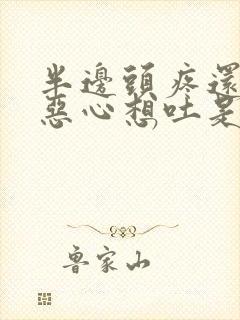 半邊頭疼還
惡心想吐是
魯家山